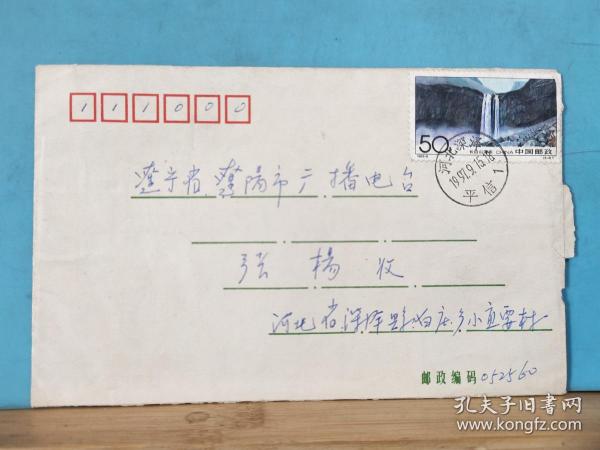 111000
50
中国邮政
CHINA
河北深泽
1997.9.15.18
平信1
辽宁省沈阳市广播电台
张杨收
河北省深泽县白庄乡小直要村
邮政编码052560
孔夫子旧书网
www.kongfz.com